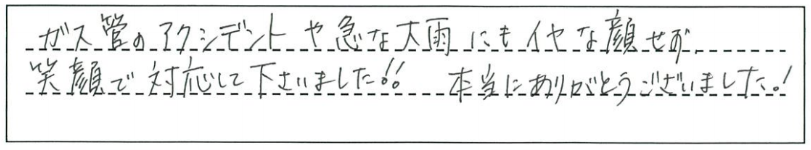 ガス管のアクシデントや急な大雨にもイヤな顔せず、
笑顔で対応して下さいました!! 本当にありがとうございました!